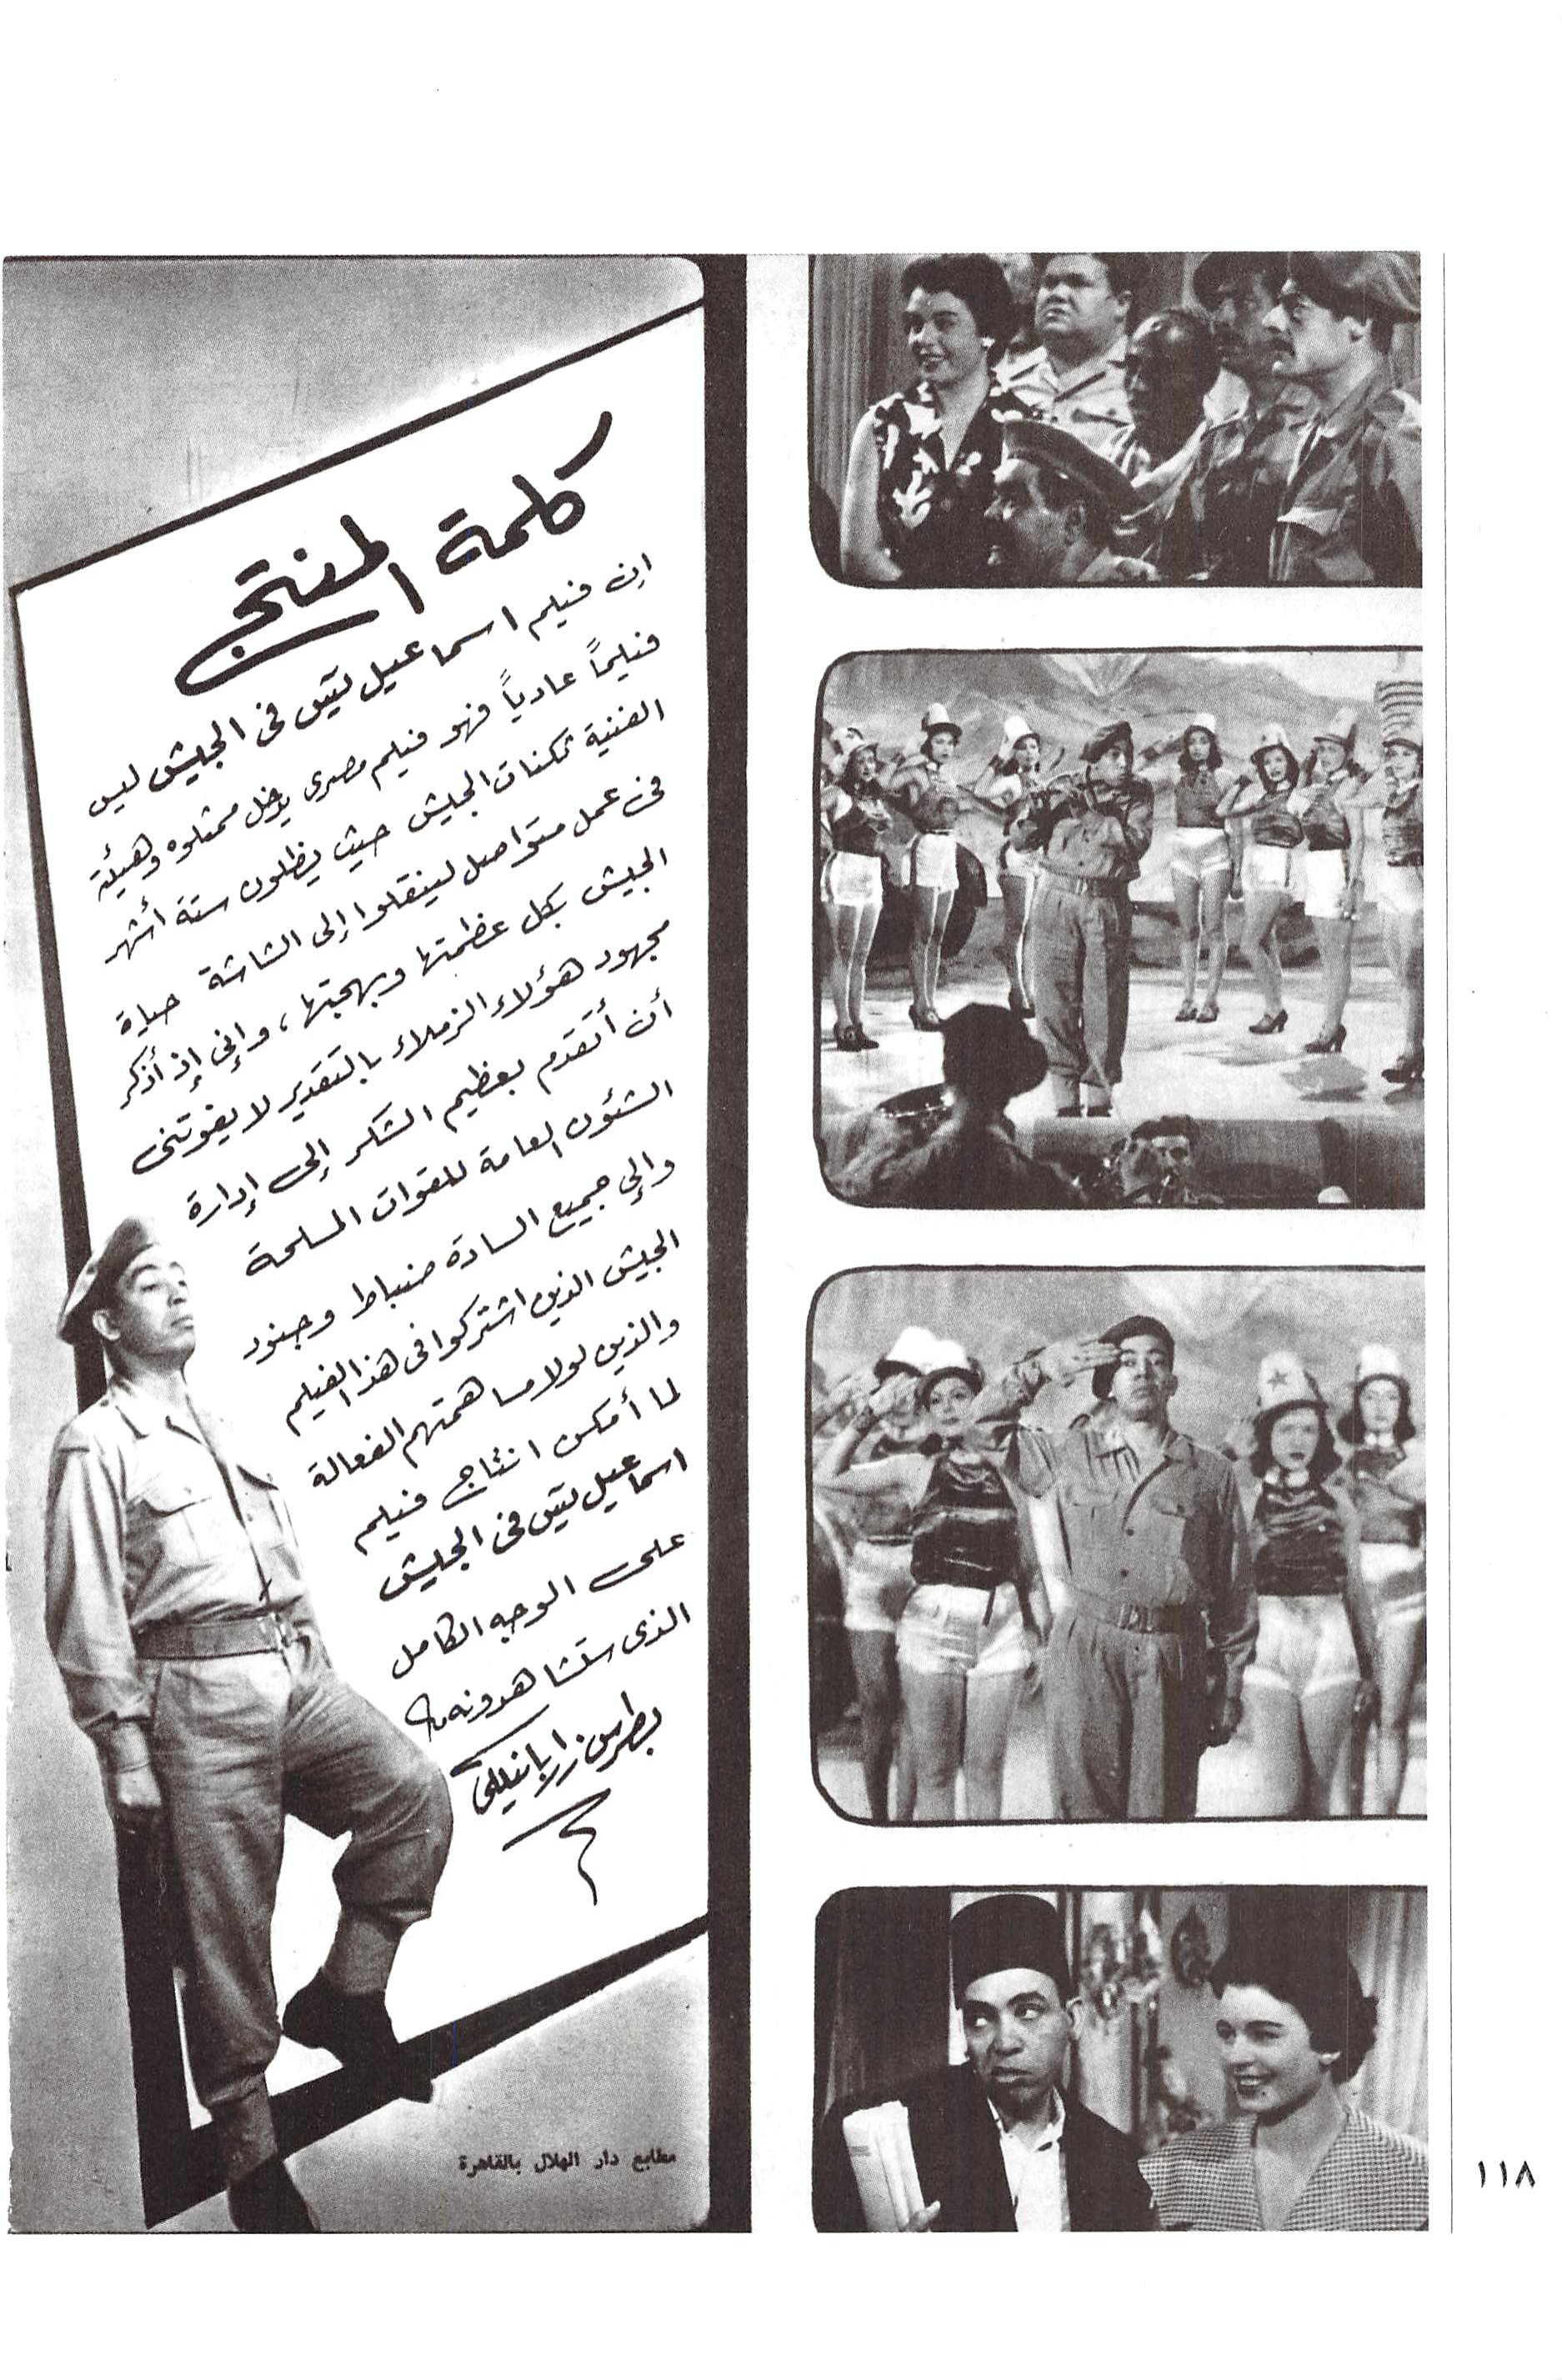 كلمة المنتج
ان فيلم اسماعيل يس فى الجيش ليس
فيلماً عادياً فهو فيلم مصرى يدخل ممثلوه وهيئته
الفنية ثكنات الجيش حيث يظلون ستة أشهر
فى عمل متواصل لينقلوا إلى الشاشة حياة
الجيش بكل عظمتها وبهجتها، وإنى إذ أذكر
مجهود هؤلاء الزملاء بالتقدير لا يفوتنى
أن أتقدم بعظيم الشكر إلى إدارة
الشئون العامة للقوات المسلحة
وإلى جميع السادة ضباط وجنود
الجيش الذين اشتركوا فى هذا الفيلم
والذين لولا مساهمتهم الفعالة
لما أمكن انتاج فيلم
اسماعيل يس فى الجيش
على الوجه الكامل
الذى ستشاهدونه
بطرس زربانيللى
مطابع دار الهلال بالقاهرة
١١٨